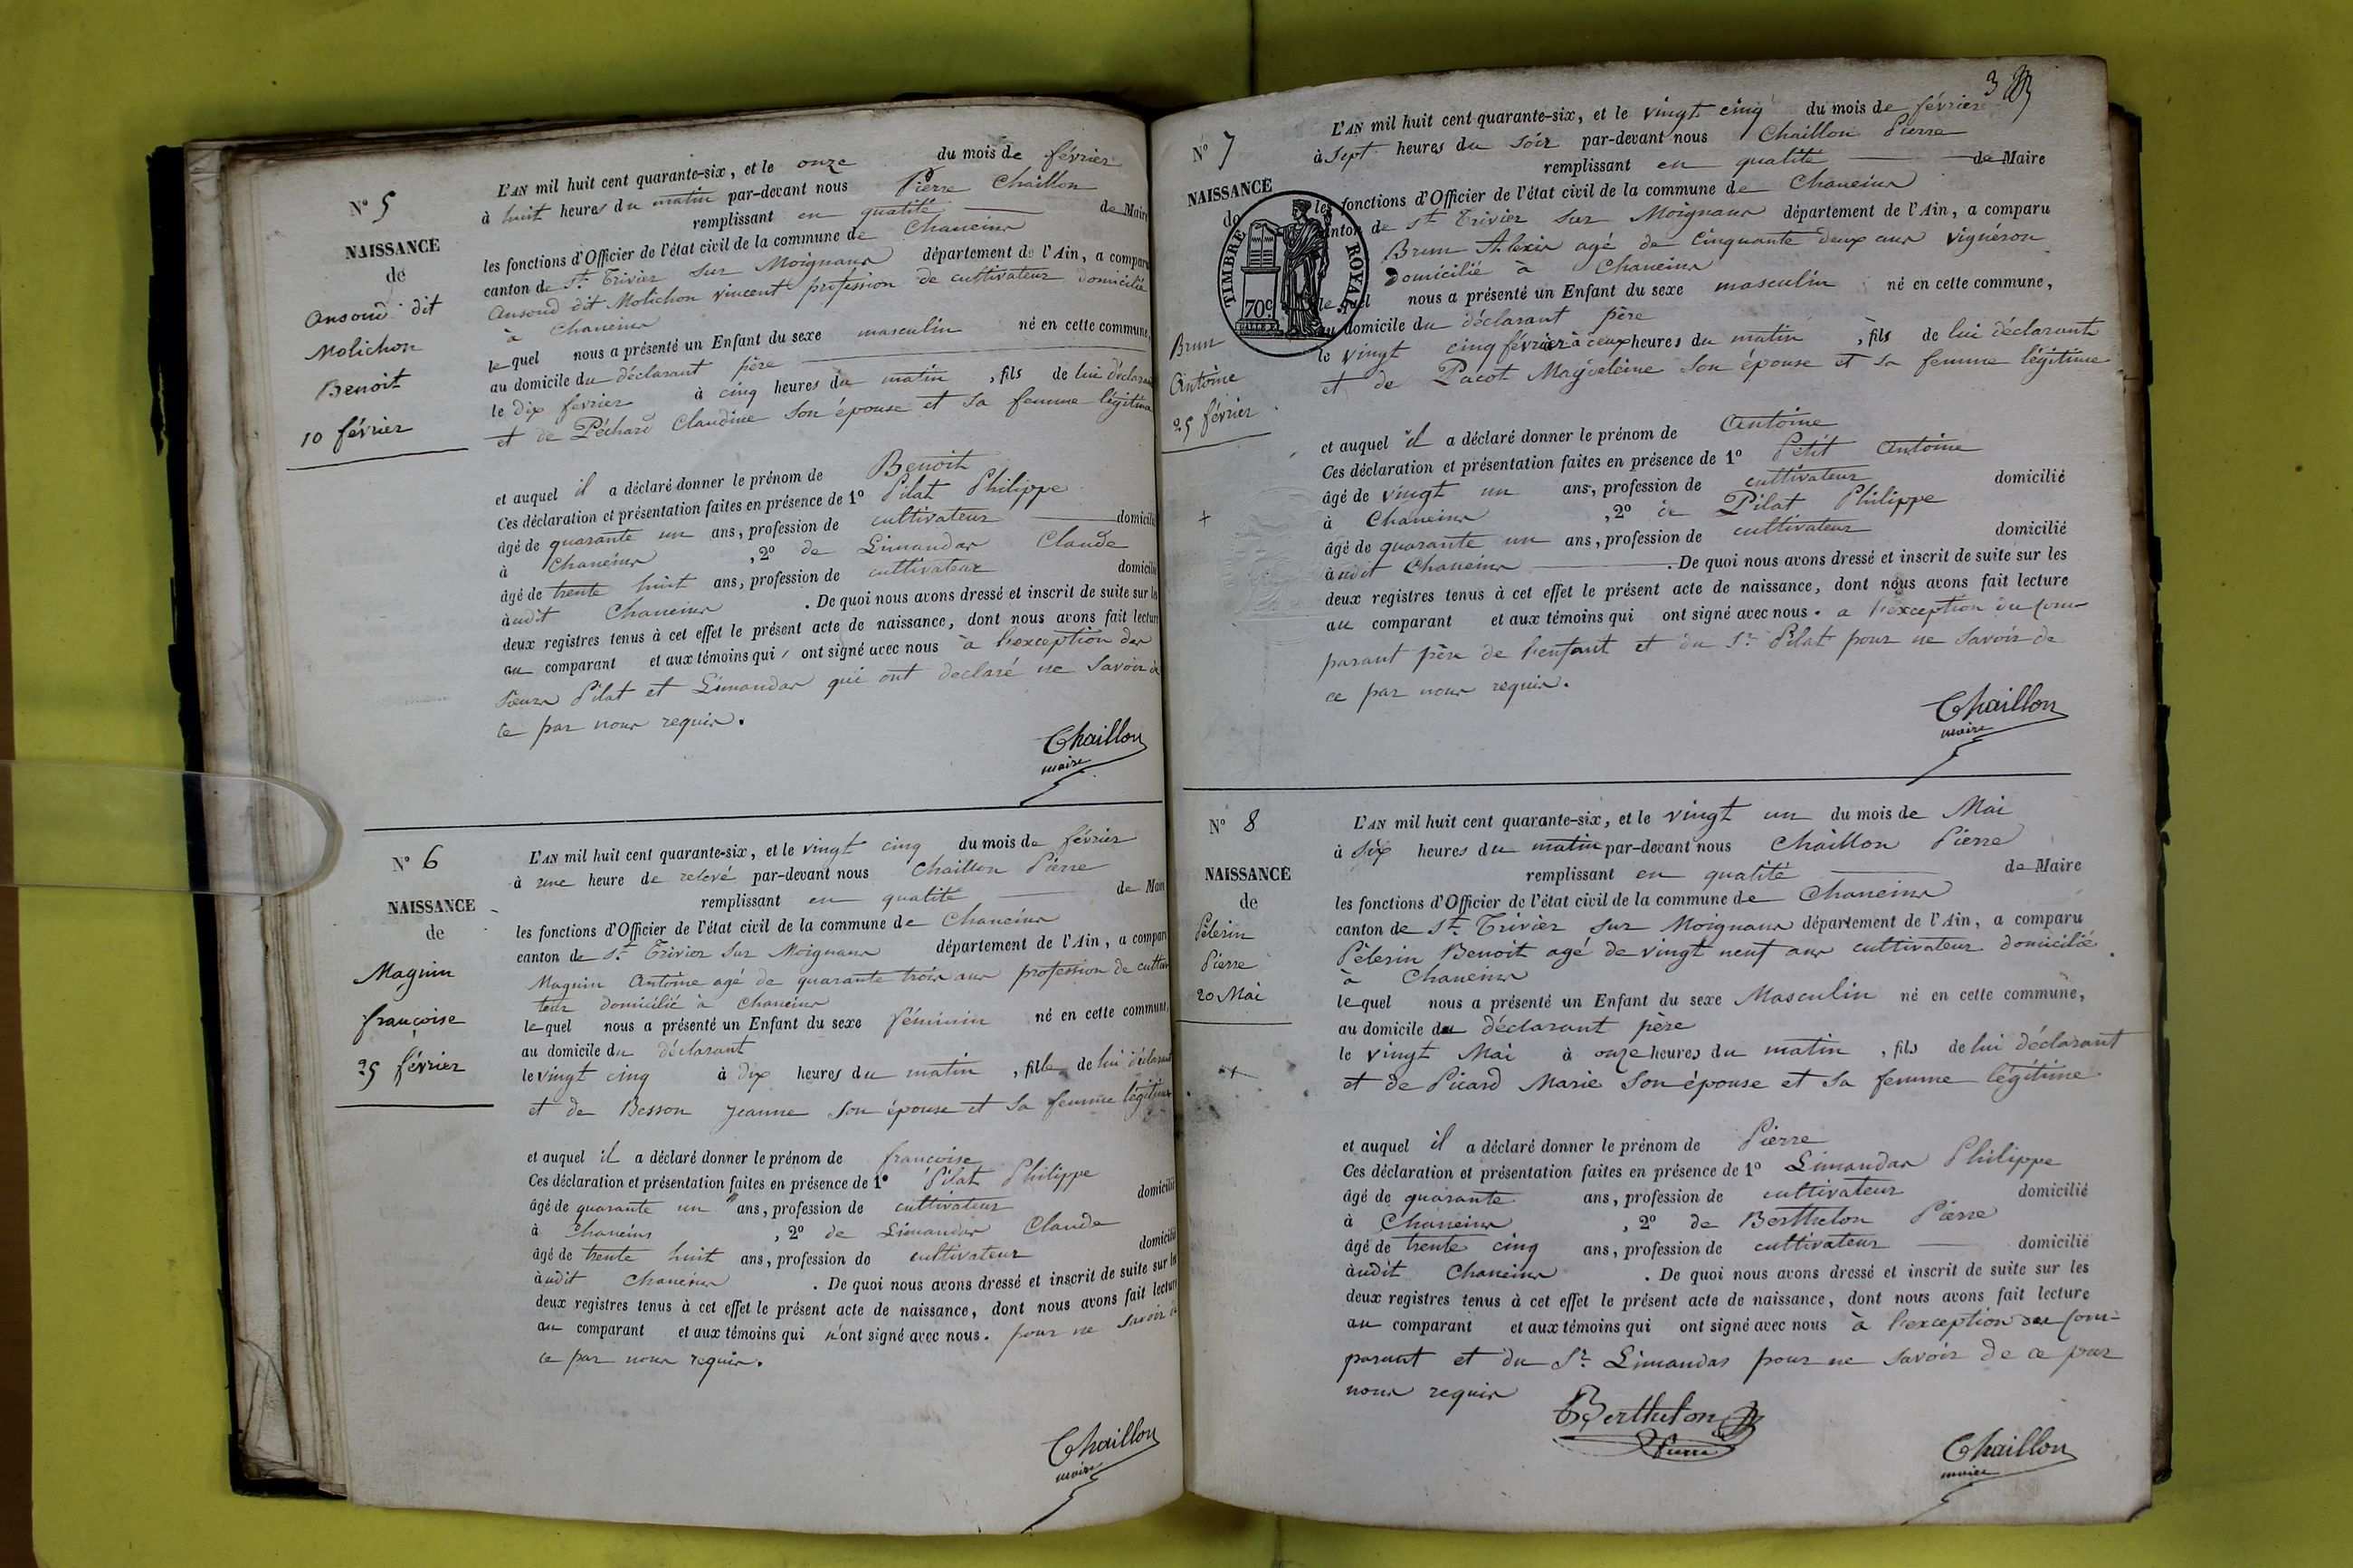 N° 5
NAISSANCE
de
Ansoud dit
Molichon
Benoit
10 février
L'AN mil huit cent quarante-six, et le onze du mois de février
à huit heures du matin par-devant nous Pierre Chaillon
remplissant en qualité de Maire
les fonctions d'Officier de l'état civil de la commune de Chaneins
canton de St. Trivier sur Moignans département de l'Ain, a comparu
Ansoud dit Molichon vincent profession de cultivateur domicilié
à Chaneins
lequel nous a présenté un Enfant du sexe masculin né en cette commune,
au domicile du déclarant père
le dix février à cinq heures du matin, fils de lui déclarant
et de Péchard Claudine son épouse et sa femme légitime
et auquel il a déclaré donner le prénom de Benoit
Ces déclaration et présentation faites en présence de 1° Pilat Philippe
âgé de quarante un ans, profession de cultivateur domicilié
à Chaneins, 2° de Limandas Claude
âgé de trente huit ans, profession de cultivateur domicilié
àudit Chaneins. De quoi nous avons dressé et inscrit de suite sur les
deux registres tenus à cet effet le présent acte de naissance, dont nous avons fait lecture
au comparant et aux témoins qui ont signé avec nous à l'exception des
sieurs Pilat et Limandas qui ont declaré ne savoir de
ce par nous requis.
Chaillon
maire
N° 6
NAISSANCE
de
Maguin
françoise
25 février
L'AN mil huit cent quarante-six, et le vingt cinq du mois de février
à une heure de relevé par-devant nous Chaillon Pierre
remplissant en qualité de Maire
les fonctions d'Officier de l'état civil de la commune de Chaneins
canton de St. Trivier sur Moignans département de l'Ain, a comparu
Maguin Antoine agé de quarante trois ans profession de cultiva
teur domicilié à Chaneins
lequel nous a présenté un Enfant du sexe féminin né en cette commune,
au domicile du déclarant
le vingt cinq à dix heures du matin, fille de lui déclarant
et de Besson Jeanne son épouse et sa femme légitime
et auquel il a déclaré donner le prénom de françoise
Ces déclaration et présentation faites en présence de 1° Pilat Philippe
âgé de quarante un ans, profession de cultivateur domicilié
à Chaneins, 2° de Limandas Claude
âgé de trente huit ans, profession de cultivateur domicilié
àudit Chaneins. De quoi nous avons dressé et inscrit de suite sur les
deux registres tenus à cet effet le présent acte de naissance, dont nous avons fait lecture
au comparant et aux témoins qui n'ont signé avec nous. pour ne savoir de
ce par nous requis.
Chaillon
maire
3
N° 7
NAISSANCE
de
TIMBRE ROYAL
70c
Brun
Antoine
25 février
L'AN mil huit cent quarante-six, et le vingt cinq du mois de février
à sept heures du soir par-devant nous Chaillon Pierre
remplissant en qualité de Maire
les fonctions d'Officier de l'état civil de la commune de Chaneins
canton de St Trivier sur Moignans département de l'Ain, a comparu
Brun Alexis agé de Cinquante deux ans vignéron
domicilié à Chaneins
lequel nous a présenté un Enfant du sexe masculin né en cette commune,
au domicile du déclarant père
le vingt cinq février à deux heures du matin, fils de lui déclarant
et de Pacot Magdeleine son épouse et sa femme légitime
et auquel il a déclaré donner le prénom de Antoine
Ces déclaration et présentation faites en présence de 1° Petit Antoine
âgé de vingt un ans, profession de cultivateur domicilié
à Chaneins, 2° de Pilat Philippe
âgé de quarante un ans, profession de cultivateur domicilié
àudit Chaneins. De quoi nous avons dressé et inscrit de suite sur les
deux registres tenus à cet effet le présent acte de naissance, dont nous avons fait lecture
au comparant et aux témoins qui ont signé avec nous. a l'exception du com-
parant père de l'enfant et du Sr. Pilat pour ne savoir de
ce par nous requis.
Chaillon
maire
N° 8
NAISSANCE
de
Pèlerin
Pierre
20 Mai
L'AN mil huit cent quarante-six, et le vingt un du mois de Mai
à six heures du matin par-devant nous Chaillon Pierre
remplissant en qualité de Maire
les fonctions d'Officier de l'état civil de la commune de Chaneins
canton de St. Trivier sur Moignans département de l'Ain, a comparu
Pèlerin Benoit agé de vingt neuf ans cultivateur domicilié
à Chaneins
lequel nous a présenté un Enfant du sexe Masculin né en cette commune,
au domicile du déclarant père
le vingt Mai à onze heures du matin, fils de lui déclarant
et de Picard Marie son épouse et sa femme légitime
et auquel il a déclaré donner le prénom de Pierre
Ces déclaration et présentation faites en présence de 1° Limandas Philippe
âgé de quarante ans, profession de cultivateur domicilié
à Chaneins, 2° de Berthelon Pierre
âgé de trente cinq ans, profession de cultivateur domicilié
àudit Chaneins. De quoi nous avons dressé et inscrit de suite sur les
deux registres tenus à cet effet le présent acte de naissance, dont nous avons fait lecture
au comparant et aux témoins qui ont signé avec nous à l'exception du com-
parant et du Sr. Limandas pour ne savoir de ce par
nous requis
Berthelon
Pierre
Chaillon
maire